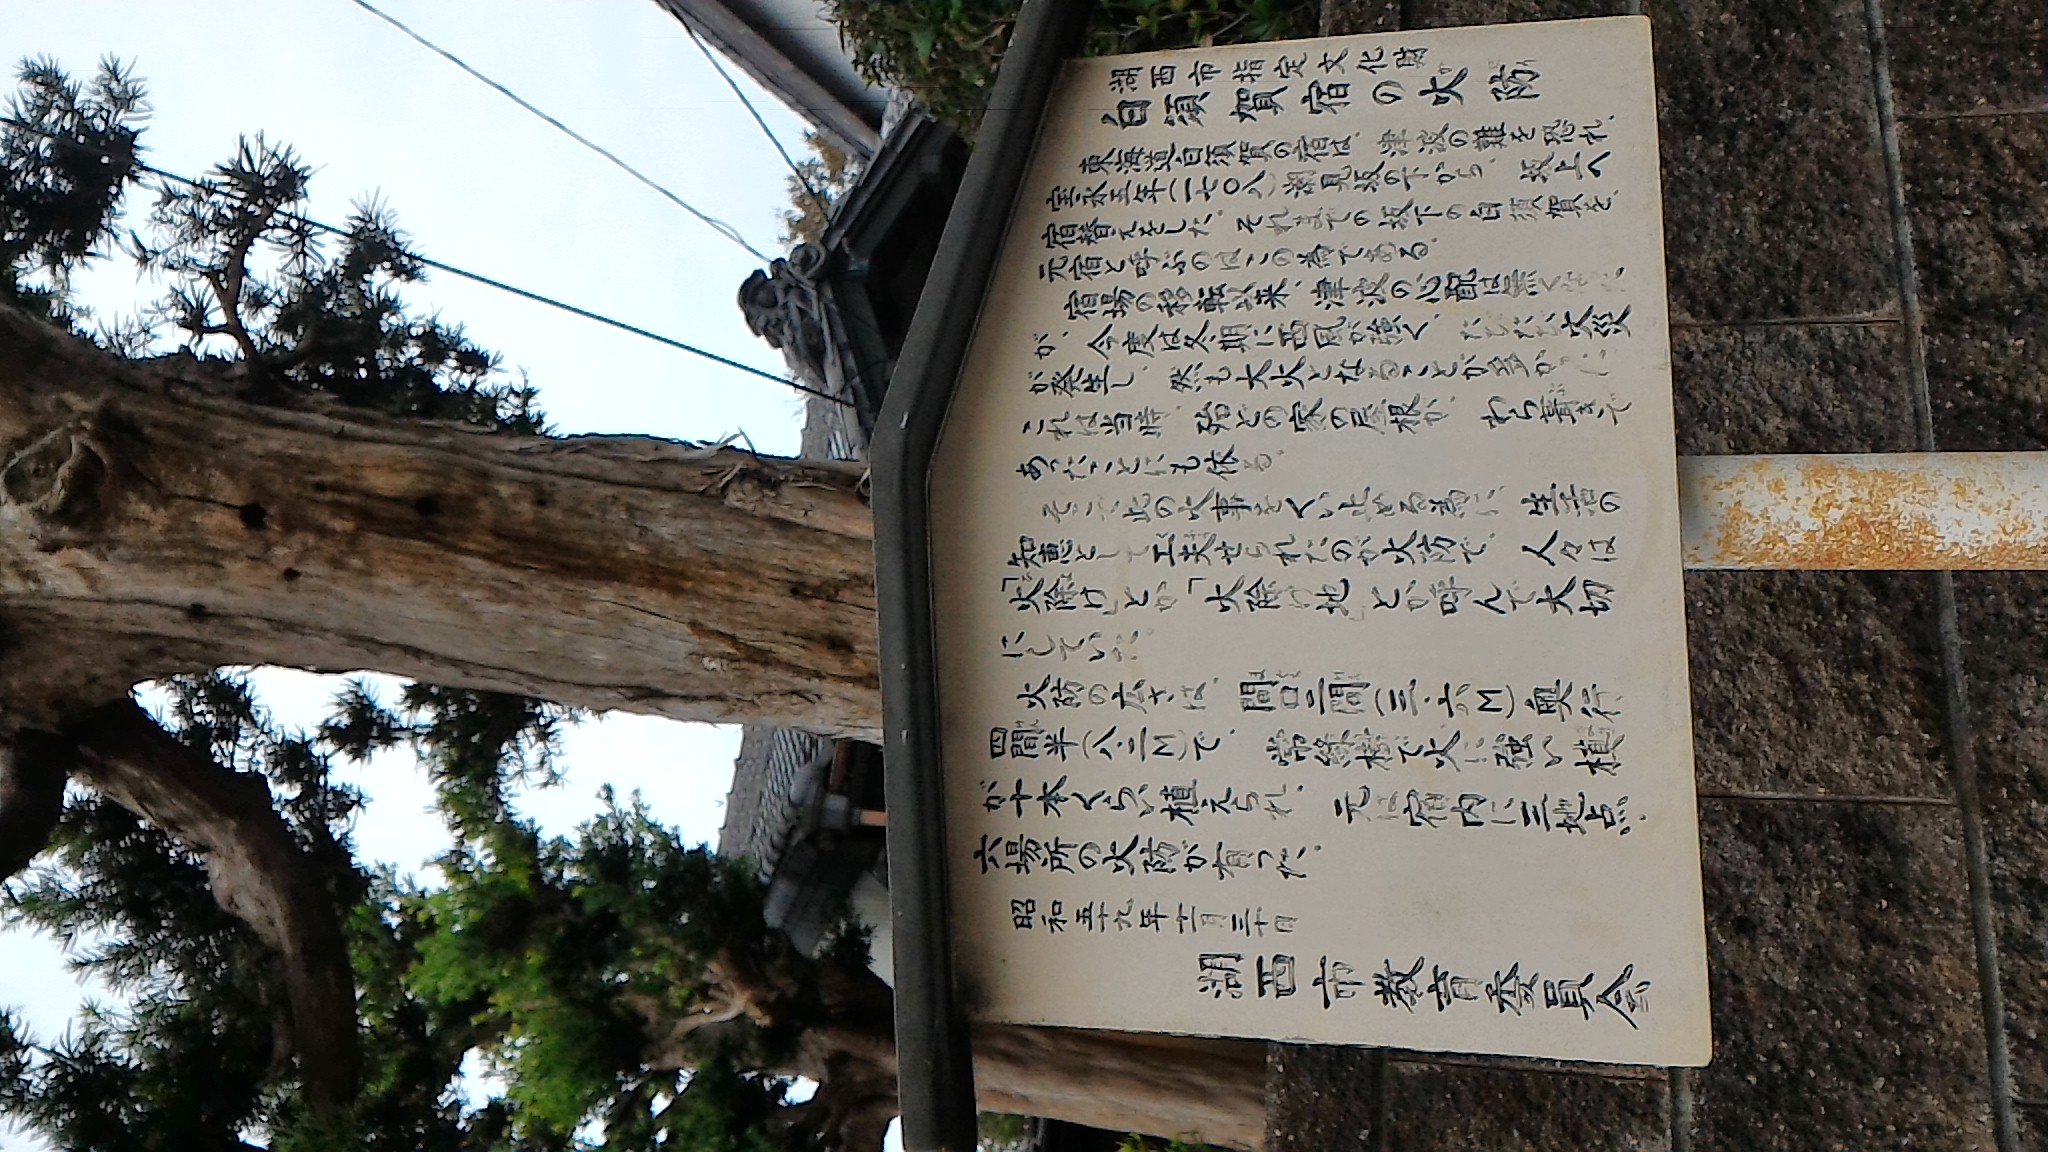 湖西市指定文化財
白須賀宿の火防
東海道白須賀の宿は、津波の難を恐れ、
宝永五年(一七〇八)潮見坂の下から、坂上へ
宿替えをした。それまでの坂下の白須賀を、
元宿と呼ぶのはこの為である。
宿場の移転以来、津波の心配は無く
が、今度は冬期に西風が強く、たびたび火災
が発生し、然も大火となることが多か
これは当時、殆どの家の屋根が、わら葺きで
あったことにも依る。
そこで此の火事をくい止める為に、生活の
知恵として工夫せられたのが火防で、人々は
「火除け」とか「火除け地」とか呼んで大切
にしていた。
火防の広さは、間口二間(三・六M)奥行
四間半(八・二M)で、常緑樹で火に強い槙
が十本くらい植えられ、元は宿内に三地点、
六場所の火防が有った。
昭和五十九年十二月三十日
湖西市教育委員会